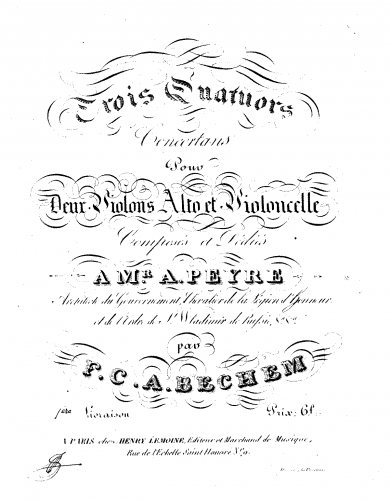 Trois Quatuors
Concertans
Pour
Deux Violons Alto et Violoncelle
Composés et Dédiés
A MR A. PEYRE
Architecte du Gouvernement, Chevalier de la Légion d'Honneur
et de l'Ordre de St Wladimir de Russie, &c &c
par
F. C. A. BECHEM
1ère Livraison Prix: 6f
A PARIS chez HENRY LEMOINE, Editeur et Marchand de Musique,
Rue de l'Echelle Saint Honoré No 9.